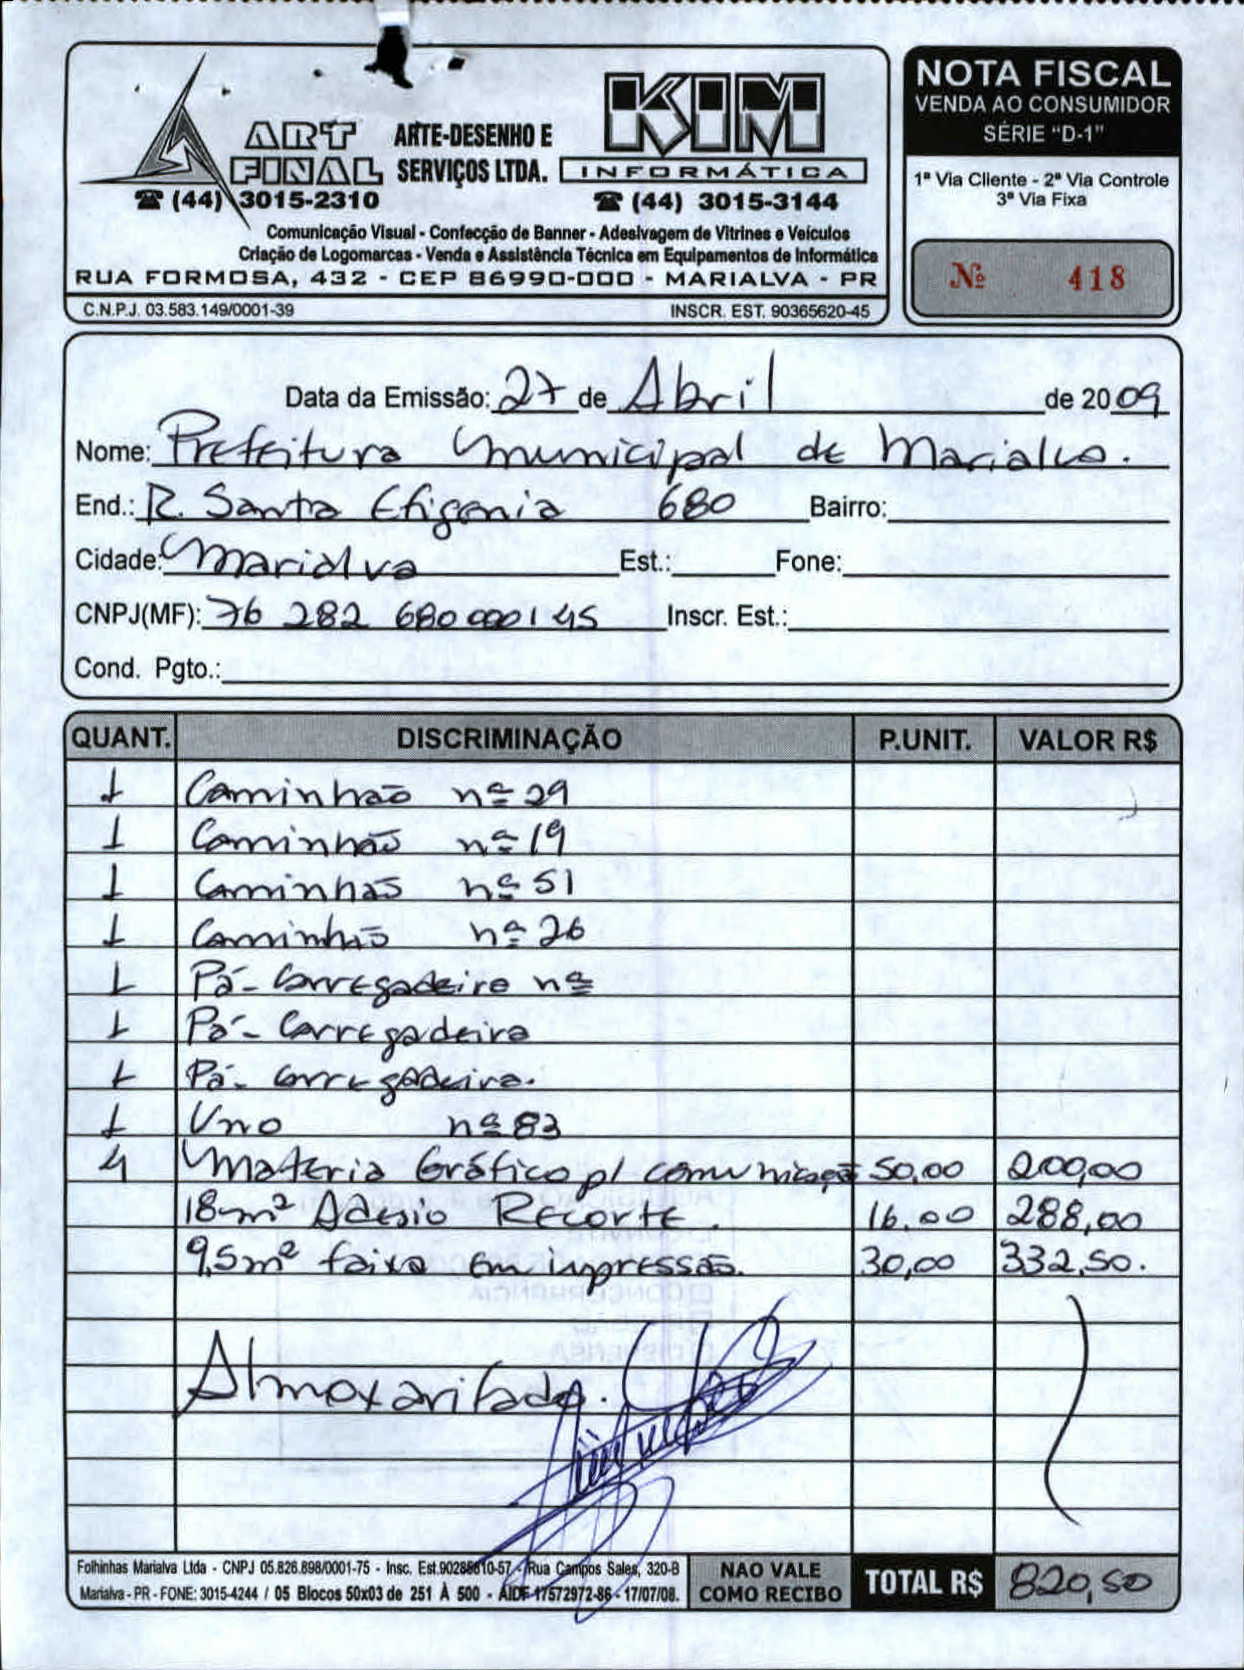 ART FINAL ARTE-DESENHO E SERVIÇOS LTDA.
KIM INFORMÁTICA
☎ (44) 3015-2310 ☎ (44) 3015-3144
Comunicação Visual - Confecção de Banner - Adesivagem de Vitrines e Veículos
Criação de Logomarcas - Venda e Assistência Técnica em Equipamentos de Informática
RUA FORMOSA, 432 - CEP 86990-000 - MARIALVA - PR
C.N.P.J. 03.583.149/0001-39 INSCR. EST. 90365620-45
NOTA FISCAL
VENDA AO CONSUMIDOR
SÉRIE “D-1”
1ª Via Cliente - 2ª Via Controle
3ª Via Fixa
Nº 418
Data da Emissão: 27 de Abril de 2009
Nome: Prefeitura Municipal de Marialva.
End.: R. Santa Efigenia 680 Bairro:
Cidade: Marialva Est.: Fone:
CNPJ(MF): 76 282 680 0001 45 Inscr. Est.:
Cond. Pgto.:
QUANT. DISCRIMINAÇÃO P.UNIT. VALOR R$
1 Caminhão nº 29
1 Caminhão nº 19
1 Caminhão nº 51
1 Caminhão nº 26
1 Pá-Carregadeira nº
1 Pá-Carregadeira
1 Pá-Carregadeira.
1 Uno nº 83
4 Materia Gráfico p/ comunicação 50,00 200,00
18m² Adesio Recorte. 16,00 288,00
9,5m² faixa em inpressão. 30,00 332,50.
Almoxarifado.
Folhinhas Marialva Ltda - CNPJ 05.826.898/0001-75 - Insc. Est.90288610-57 - Rua Campos Sales, 320-B
Marialva - PR - FONE: 3015-4244 / 05 Blocos 50x03 de 251 À 500 - AIDF 17572972-86 - 17/07/08.
NAO VALE
COMO RECIBO
TOTAL R$ 820,50